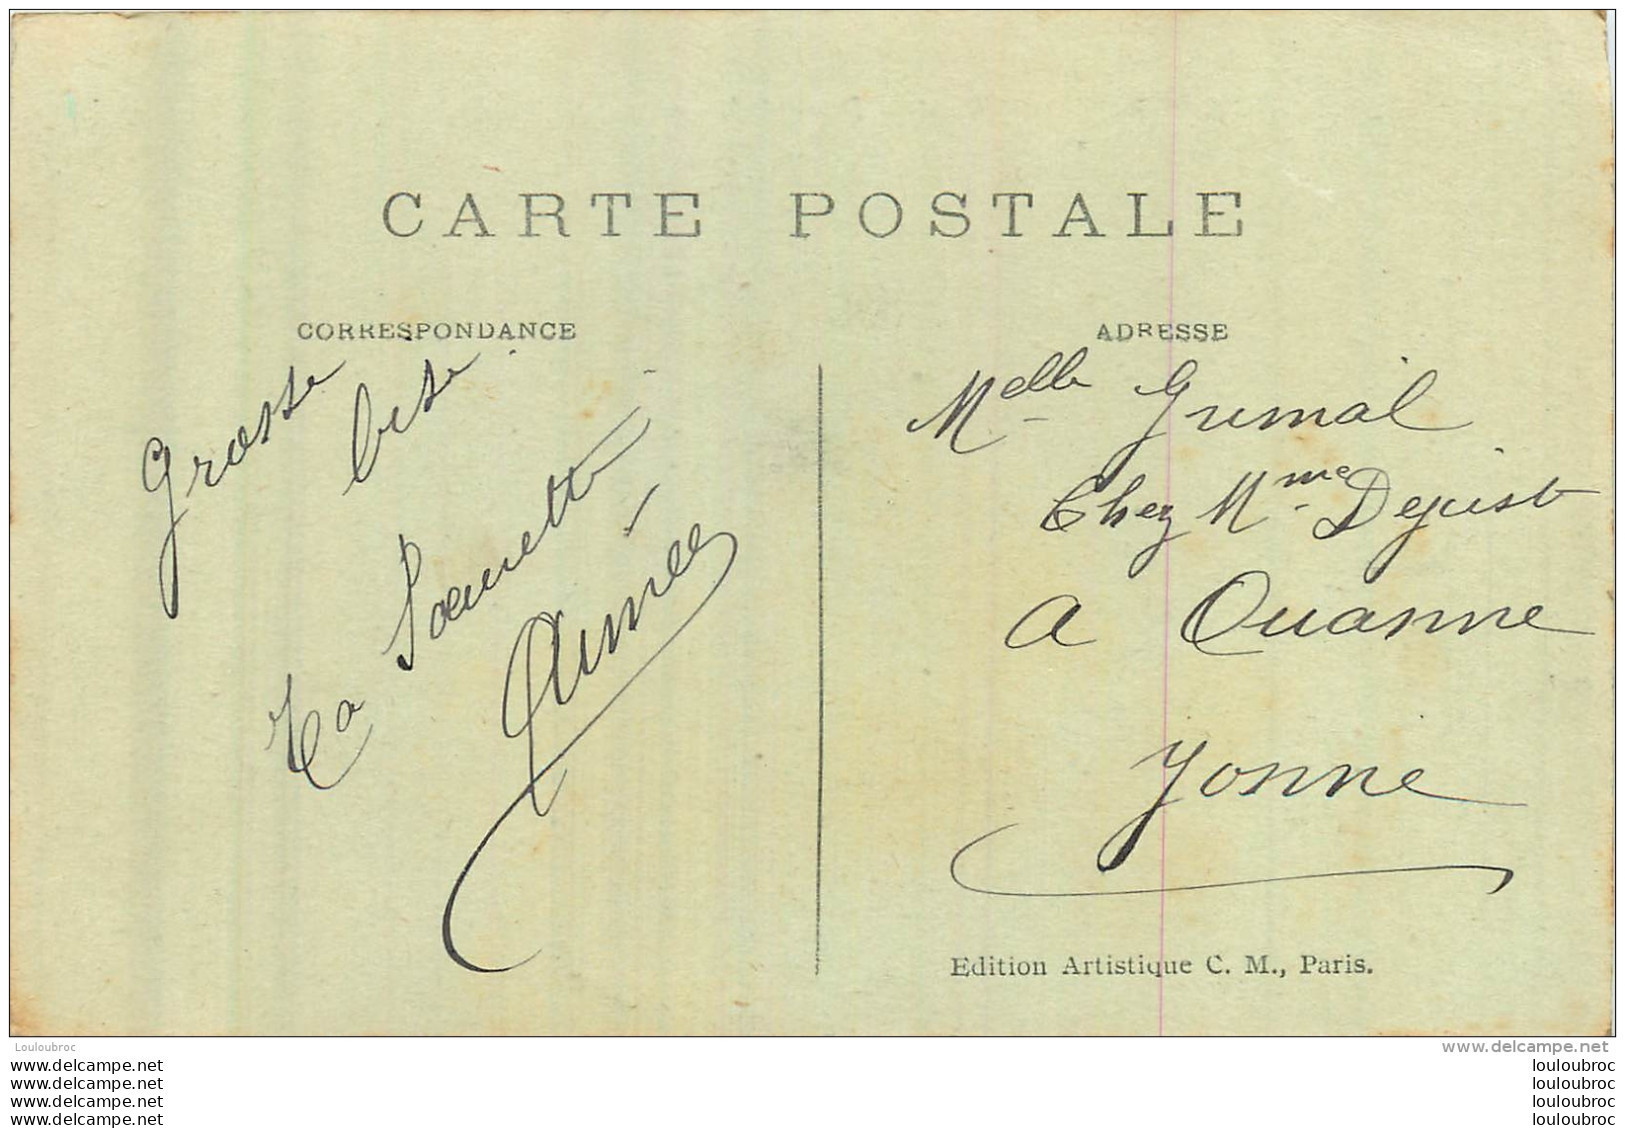 CARTE POSTALE
CORRESPONDANCE
Grosse bise
Ta Sœurette
Aimée
ADRESSE
Melle Grimal
Chez Mme Dejust
a Ouanne
Yonne
Edition Artistique C. M., Paris.
Louloubroc
www.delcampe.net
www.delcampe.net
www.delcampe.net
www.delcampe.net
www.delcampe.net
louloubroc
louloubroc
louloubroc
louloubroc